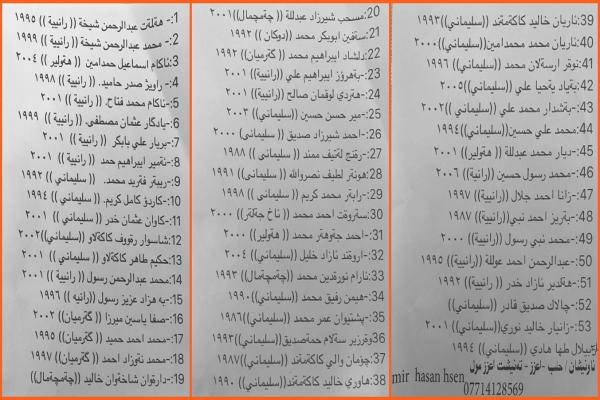 1:- هةلَلَت عبدالرحمن شيخة (( رانيية )) ١٩٩٥
2:- محمد عبدالرحمن شيخة (( رانية )) ١٩٩٩
3:ئاكام اسماعيل حمدامين (( هةولير )) ٢٠٠٤
4:- راويژ صدر حاميد. (( رانيية )) ١٩٩٨
5:-ئاكام محمد فتاح. (( رانيية )) ٢٠٠١
6:-يادگار عثمان مصطفى. (( رانيية )) ١٩٩٩
7:-بريار علي بابكر (( رانيية )) ٢٠٠١
8:-ئةمير ابيراهيم حمد (( رانيية )) ٢٠٠١
9:-ريبتر فةريد محمد. (( سليماني )) ١٩٩٢
10:-كاردۆ كامل كريم. (( سليماني )) ١٩٩٤
11:-كاوان عثمان خدر (( سليماني )) ٢٠٠١
12:شاسوار رةووف كاكةلاو ((سليماني))٢٠٠٢
13:حكيم طاهر كاكةلاو (( سليماني )) ٢٠٠١
14:محمد عبدالرحمن رسول (( رانيية )) ٢٠٠١
15:-بة هزاد عزيز رسول ((رانيه )) ١٩٩٦
16:-صفا ياسين ميرزا (( گةرميان)) ٢٠٠٢
17:-محمد احمد حميد (( گةرميان)) ١٩٩٥
18:-محمد نةوزاد احمد (( گةرميان)) ١٩٩٧
19:-دارةوان شاخةوان خاليد ((چةمچةمال))
20:مسحب شيرزاد عبدللة (( چةمچمال))٢٠٠١
21:سةفين ابوبكر محمد ((دوكان )) ١٩٩٢
22:دلشاد ابيراهيم محمد (( گةرميان)) ١٩٩٢
23:-بةهرۆز ابيراهيم علي ((رانيية)) ٢٠٠١
24:-هةردي لوقمان صالح ((رانيية)) ٢٠٠١
25:-مير حسن حسين ((سليماني)) ٢٠٠٣
26:-احمد شيرزاد صديق (( سليماني )) ٢٠٠٠
27:-رةنج لةتيف ممند (( سليماني )) ١٩٨٨
28:هونةر لطيف نصروالله (( سليماني )) ١٩٩١
29:-رابةر محمد كريم (( سليماني )) ١٩٩٨
30:ستروقت احمد محمد (( ئاخ جةلةر)) ٢٠٠٠
31:-احمد جةوهةر محمد (( هةولير)) ٢٠٠٠
32:-اروقند ئازاد خليل ((سليماني)) ٢٠٠٤
33:ئارام نورةدين محمد ((چةمچةمال)) ١٩٩٣
34:-هيمن رفيق محمد (( سليماني))١٩٩٠
35:-پشتيوان عمر محمد ((سليماني))١٩٨٦
36وةرزير سةلام حمةصديق((سليماني))١٩٩٣
37:چۆمان والي كاكةمةند((سليماني))١٩٨٧
38:هاوري خاليد كاكةمةند((سليماني))١٩٩٠
39:ئاريان خاليد كاكةمةند ((سليماني))١٩٩٣
40:ئاريان محمد محمدامين((سليماني))٢٠٠٠
41:ئوقر ارسةلان محمد (( سليماني)) ١٩٩٦
42:يةياد يةحيا علي ((سليماني))٢٠٠٥
43:-بةشدار محمد علي ((سليماني))٢٠٠٢
44:محمد علي حسين((سليماني))١٩٩٤
45:-ديار محمد عبدللة (( هةولير)) ٢٠٠١
46:-محمد رسول حسين ((رانية)) ٢٠٠٦
47:-زانا احمد جلال ((رانيية)) ١٩٩٧
48:-بةريز احمد نبي((رانيية)) ١٩٨٧
49:-محمد نبي رسول ((رانيية)) ٢٠٠٠
50:-عبدالرحمن احمد عوللة ((رانيية)) ١٩٩٥
51:-هةلدير ئازاد خدر (( رانيية)) ١٩٩٢
52:-چالاك صديق قادر ((سليماني))
53:-زانيار خاليد نوري((سليماني)) ٢٠٠١
ئيلال طها هادي (( سليماني )) ١٩٩٤
ناونيشان / حلب -اعزز - تةنيشت اعزز مول
mir hasan hsen
07714128569